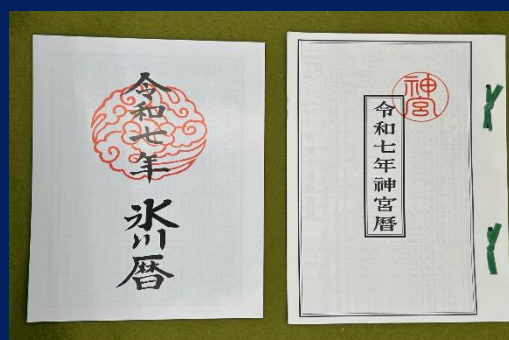 令和七年
氷川暦
神宮
令和七年神宮暦